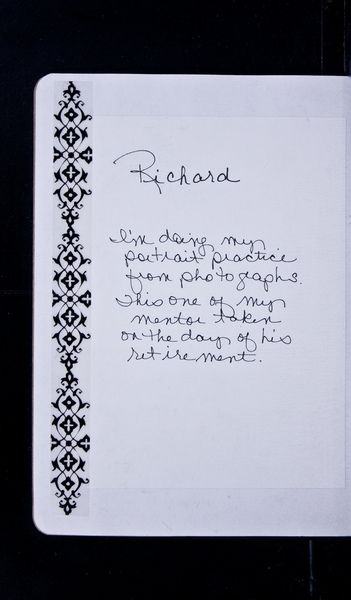 Richard
I'm doing my
portrait practice
from photographs.
This one of my
mentor taken
on the day of his
retirement.